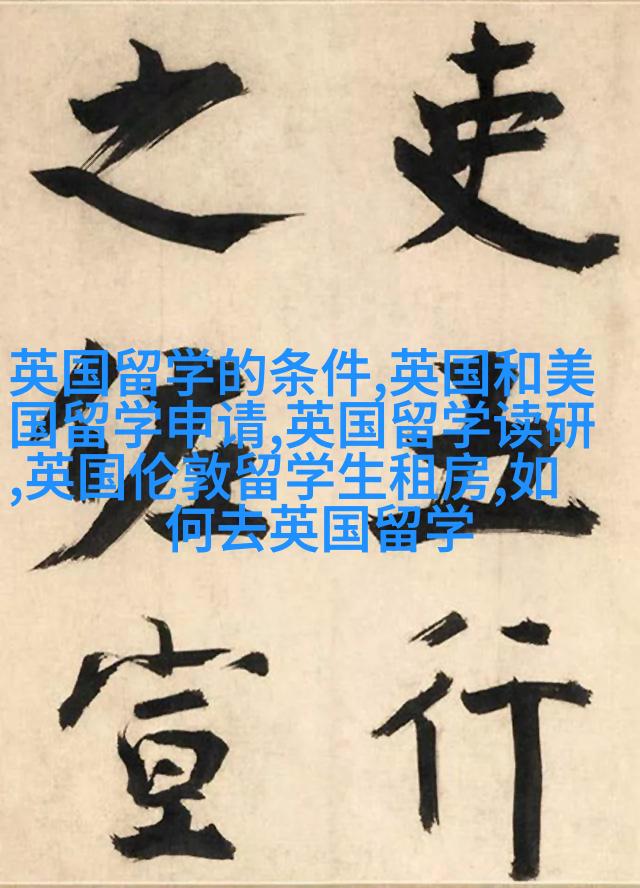 吏行
之宣
英国留学的条件,英国和美
国留学申请,英国留学读研
,英国伦敦留学生租房,如
何去英国留学